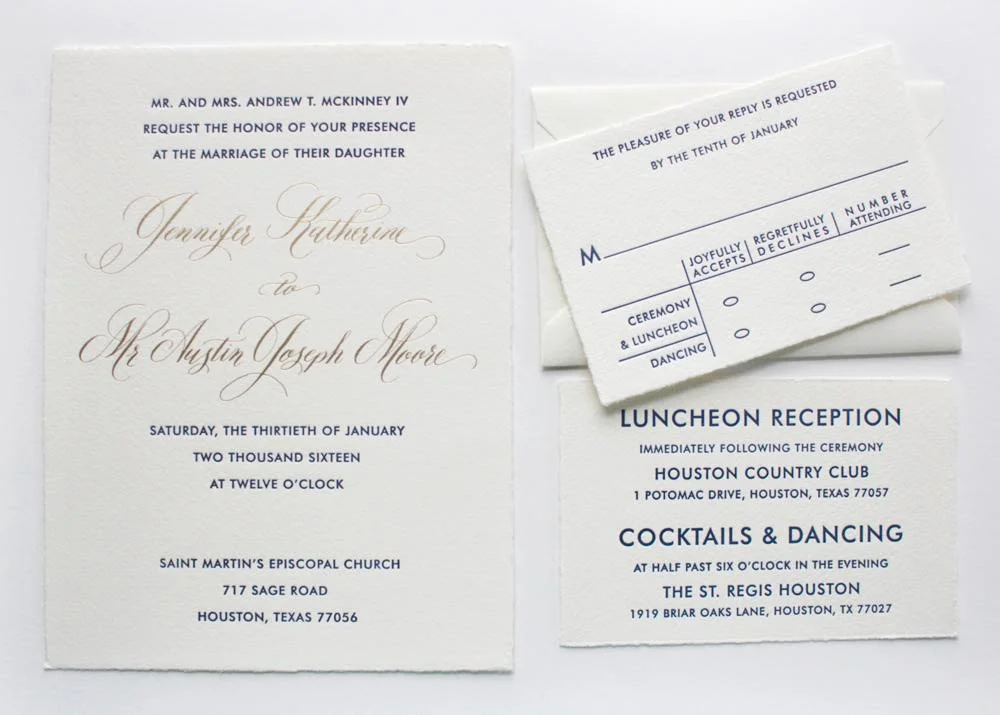 MR. AND MRS. ANDREW T. MCKINNEY IV
REQUEST THE HONOR OF YOUR PRESENCE
AT THE MARRIAGE OF THEIR DAUGHTER
Jennifer Katherine
to
Mr Austin Joseph Moore
SATURDAY, THE THIRTIETH OF JANUARY
TWO THOUSAND SIXTEEN
AT TWELVE O'CLOCK
SAINT MARTIN'S EPISCOPAL CHURCH
717 SAGE ROAD
HOUSTON, TEXAS 77056
THE PLEASURE OF YOUR REPLY IS REQUESTED
BY THE TENTH OF JANUARY
M
JOYFULLY ACCEPTS
REGRETFULLY DECLINES
NUMBER ATTENDING
CEREMONY
& LUNCHEON
DANCING
LUNCHEON RECEPTION
IMMEDIATELY FOLLOWING THE CEREMONY
HOUSTON COUNTRY CLUB
1 POTOMAC DRIVE, HOUSTON, TEXAS 77057
COCKTAILS & DANCING
AT HALF PAST SIX O'CLOCK IN THE EVENING
THE ST. REGIS HOUSTON
1919 BRIAR OAKS LANE, HOUSTON, TX 77027